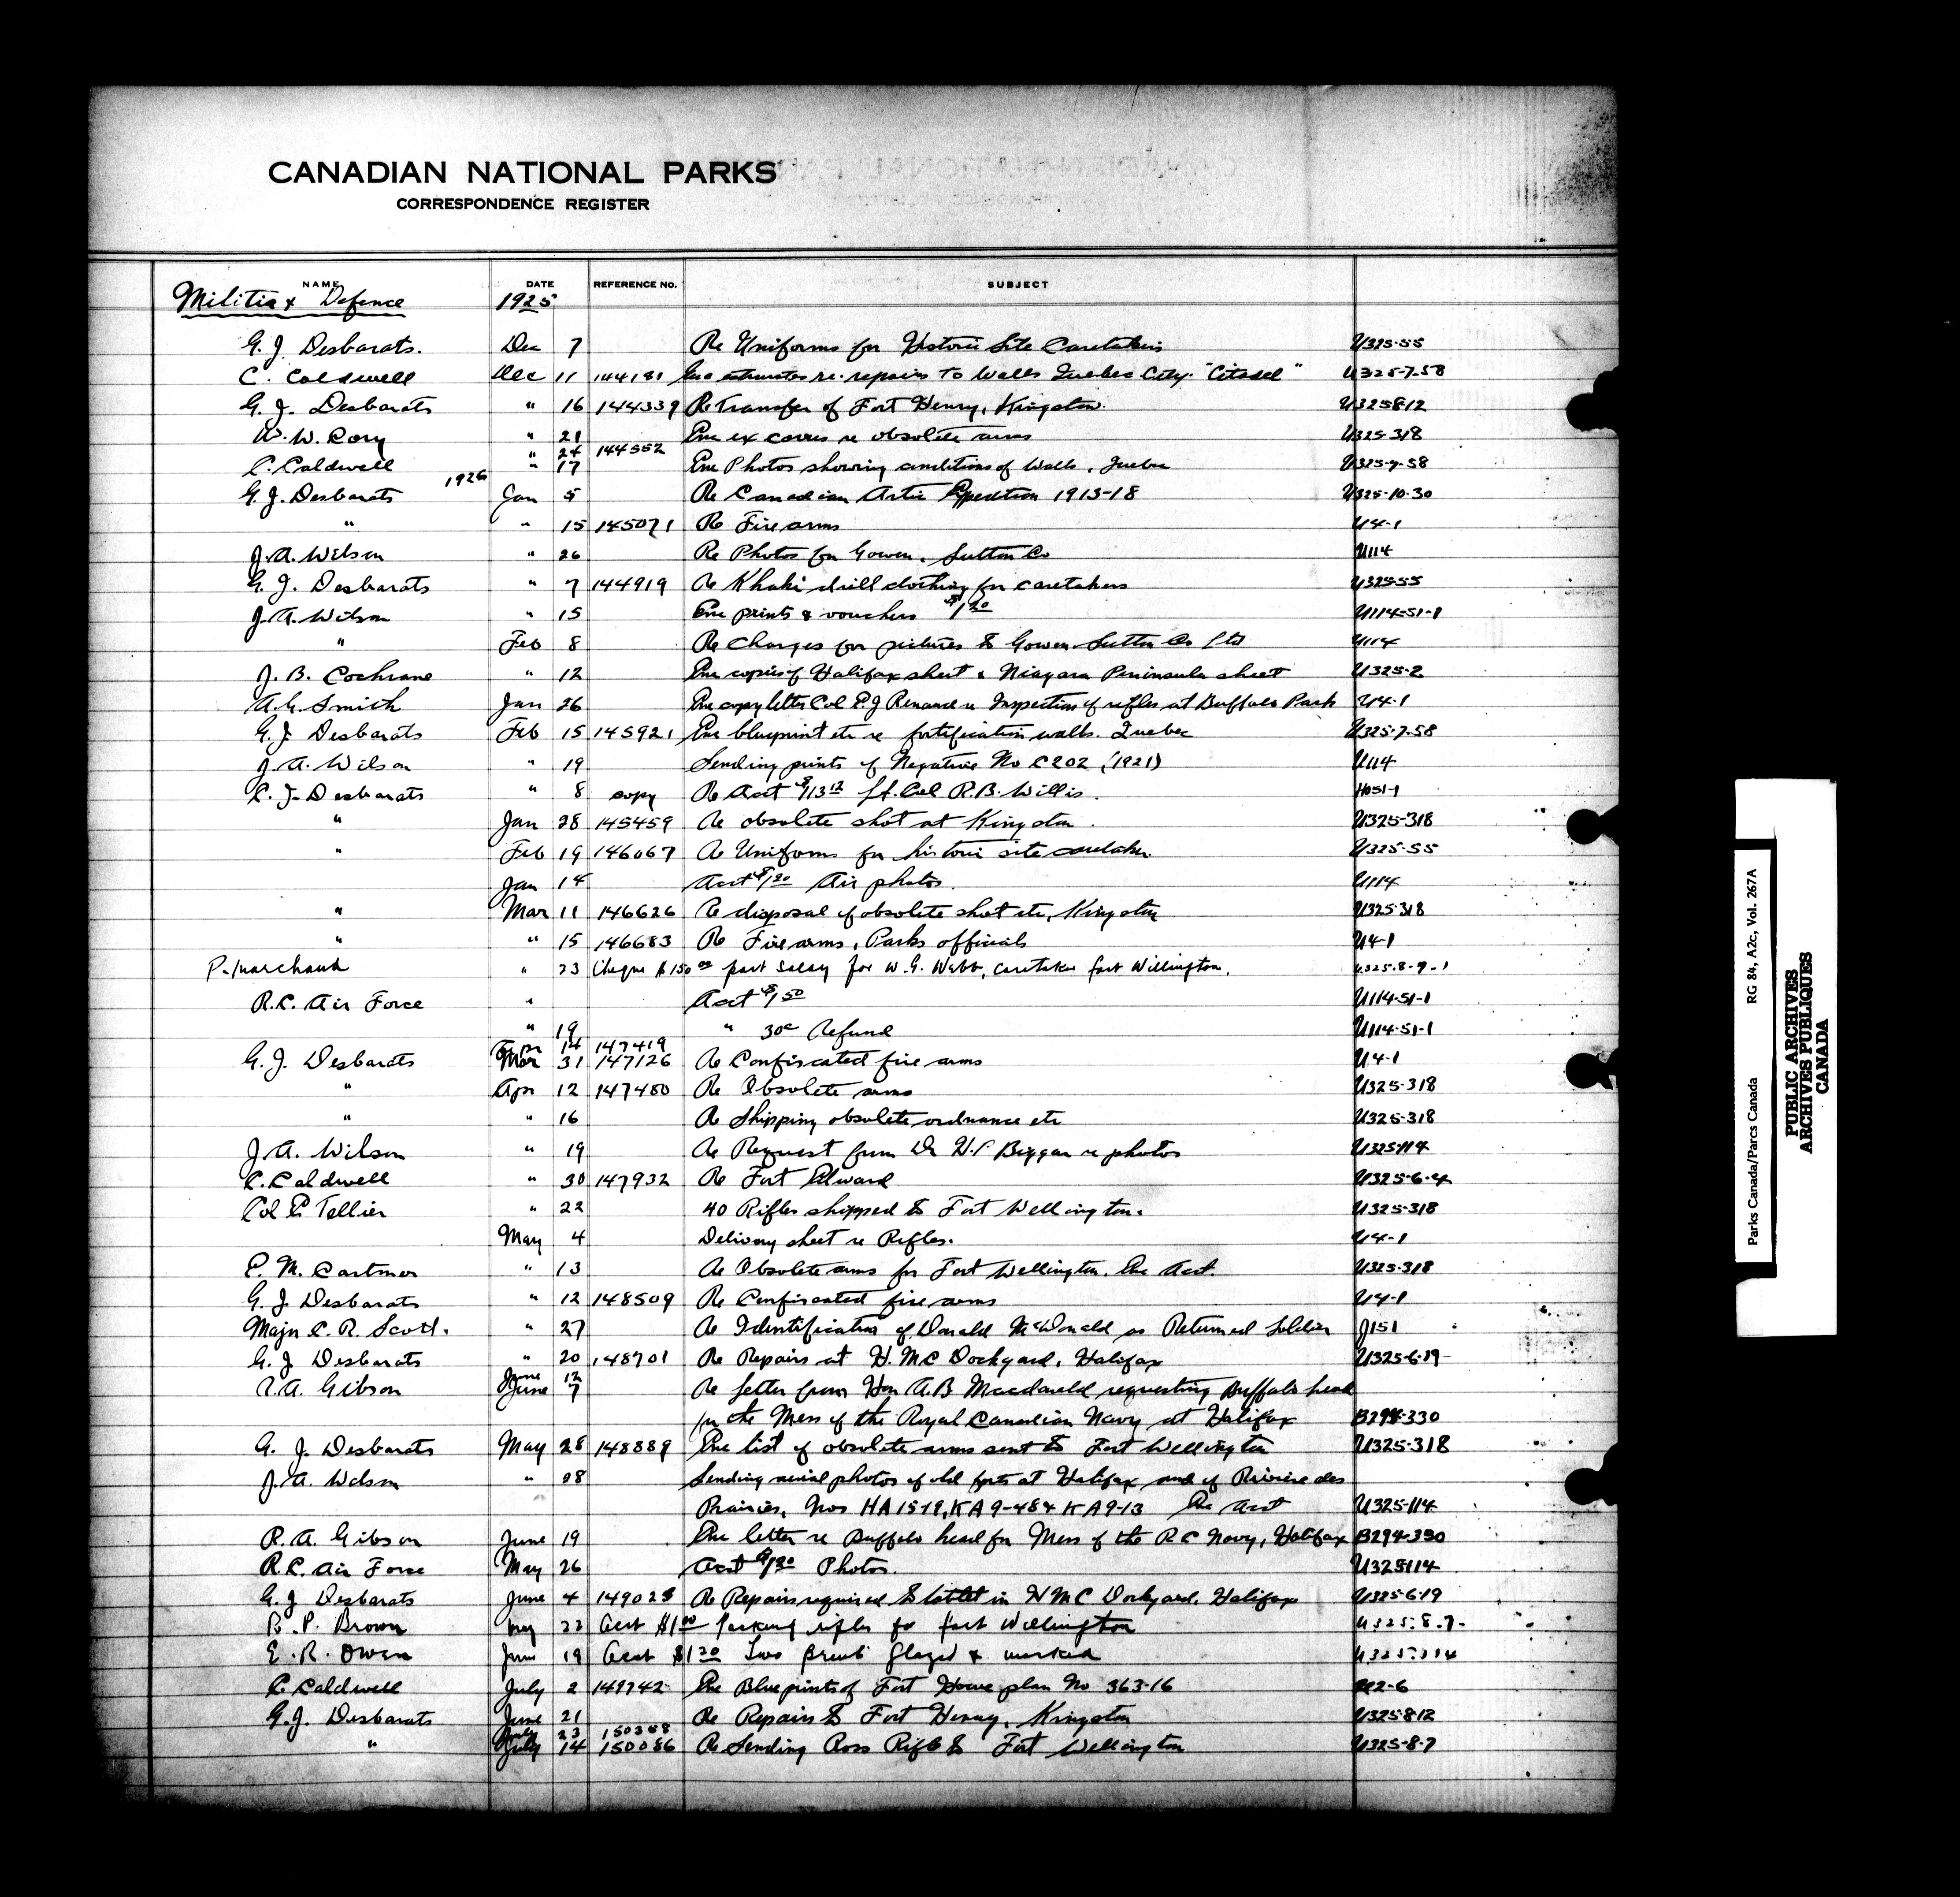 CANADIAN NATIONAL PARKS
CORRESPONDENCE REGISTER
NAME DATE REFERENCE No. SUBJECT
Militia & Defence 1925
G. J. Desbarats. Dec 7 Re Uniforms for Historic Site Caretakers U325-55
C. Caldwell Dec 11 144181 Enc estimates re. repairs to Walls Quebec City. "Citadel" U325-7-58
G. J. Desbarats " 16 144339 Re Transfer of Fort Henry, Kingston. U325-8-12
W. W. Cory " 21 Enc ex corres re obsolete arms U325-318
" 24 144552
C. Caldwell " 17 Enc Photos showing conditions of Walls, Quebec U325-7-58
1926
G. J. Desbarats Jan 5 Re Canadian Artic Expedition 1913-18 U325-10-30
" " 15 145071 Re Fire arms U4-1
J. A. Wilson " 26 Re Photos for Gowen, Sutton Co U114
G. J. Desbarats " 7 144919 Re Khaki drill clothing for caretakers U325-55
J. A. Wilson " 15 Enc prints & vouchers $1.20 U114-51-1
" Feb 8 Re Charges for pictures to Gowen Sutton Co Ltd U114
J. B. Cochrane " 12 Enc copies of Halifax sheet & Niagara Peninsula sheet U325-2
A. G. Smith Jan 26 Enc copy letter Col E J Renaud re Inspection of rifles at Buffalo Park U4-1
G. J. Desbarats Feb 15 145921 Enc blueprint etc re fortification walls. Quebec U325-7-58
J. A. Wilson " 19 Sending prints of Negative No C202 (1921) U114
G. J. Desbarats " 8 copy Re Acct $113.12 Lt. Col R. B. Willis. H051-1
" Jan 28 145459 Re obsolete shot at Kingston. U325-318
" Feb 19 146067 Re Uniforms for historic site caretaker. U325-55
Jan 14 Acct $1.20 Air photos. U114
" Mar 11 146626 Re disposal of obsolete shot etc, Kingston U325-318
" " 15 146683 Re Fire arms, Parks officials U4-1
P. Marchand " 23 Cheque $150.00 part salary for W. G. Webb, caretaker Fort Wellington. U325-8-7-1
R. C. Air Force " Acct $1.50 U114-51-1
" 19 " 30c Refund U114-51-1
Apr 14 147419
G. J. Desbarats Mar 31 147126 Re Confiscated fire arms U4-1
" Apr 12 147480 Re Obsolete arms U325-318
" " 16 Re Shipping obsolete ordnance etc U325-318
J. A. Wilson " 19 Re Request from Dr H. P. Biggar re photos U325-114
C. Caldwell " 30 147932 Re Fort Edward U325-6-4
Col E Tellier " 22 40 Rifles shipped to Fort Wellington. U325-318
May 4 Delivery sheet re Rifles. U4-1
E. M. Cartmer " 13 Re Obsolete arms for Fort Wellington. Enc Acct. U325-318
G. J. Desbarats " 12 148509 Re Confiscated fire arms U4-1
Major C. R. Scott. " 27 Re Identification of Donald McDonald as Returned Soldier J151
G. J Desbarats " 20 148701 Re Repairs at H. M C Dockyard, Halifax U325-6-19
June 12
R. A. Gibson June 7 Re letter from Hon A. B Macdonald requesting Buffalo head
for the Mess of the Royal Canadian Navy at Halifax B294-330
G. J. Desbarats May 28 148889 Enc list of obsolete arms sent to Fort Wellington U325-318
J. A. Wilson " 28 Sending aerial photos of old forts at Halifax and of Riviere des
Prairies, Nos HA 15-19, KA 9-48 & KA 9-13 Enc Acct U325-114
R. A. Gibson June 19 Enc letter re Buffalo head for Mess of the R C Navy, Halifax B294-330
R. C. Air Force May 26 Acct $1.20 Photos. U325-114
G. J Desbarats June 4 149028 Re Repairs required to toilet in H M C Dockyard, Halifax U325-6-19
B. P. Brown May 22 Acct $1.00 Packing rifles for Fort Wellington U325-8-7-
E. R. Owen June 19 Acct $1.20 Two prints glazed & marked U325-114
C. Caldwell July 2 149742 Enc Blueprints of Fort Howe plan No 363-16 2-6
G. J. Desbarats June 21 Re Repairs to Fort Henry, Kingston U325-8-12
July 23 150358
" July 14 150086 Re Sending Ross Rifle to Fort Wellington U325-8-7
Parks Canada/Parcs Canada RG 84, A2c, Vol. 267A
PUBLIC ARCHIVES
ARCHIVES PUBLIQUES
CANADA